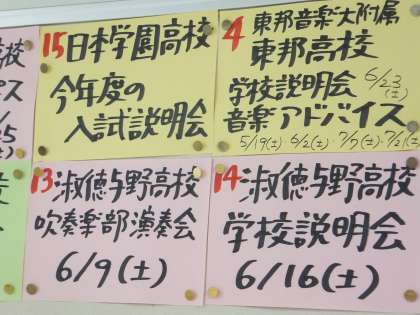 校
ス
/25
(土)
15 日本学園高校
今年度の
入試説明会
4 東邦音楽大附属
東邦高校
学校説明会 6/23(土)
音楽アドバイス
5/19(土)・6/2(土)・7/7(土)・7/21(土)
校
13 淑徳与野高校
吹奏楽部演奏会
6/9(土)
14 淑徳与野高校
学校説明会
6/16(土)